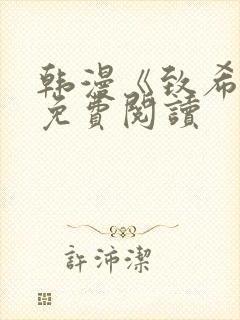 韩漫《致希
免費閱讀
許沛潔